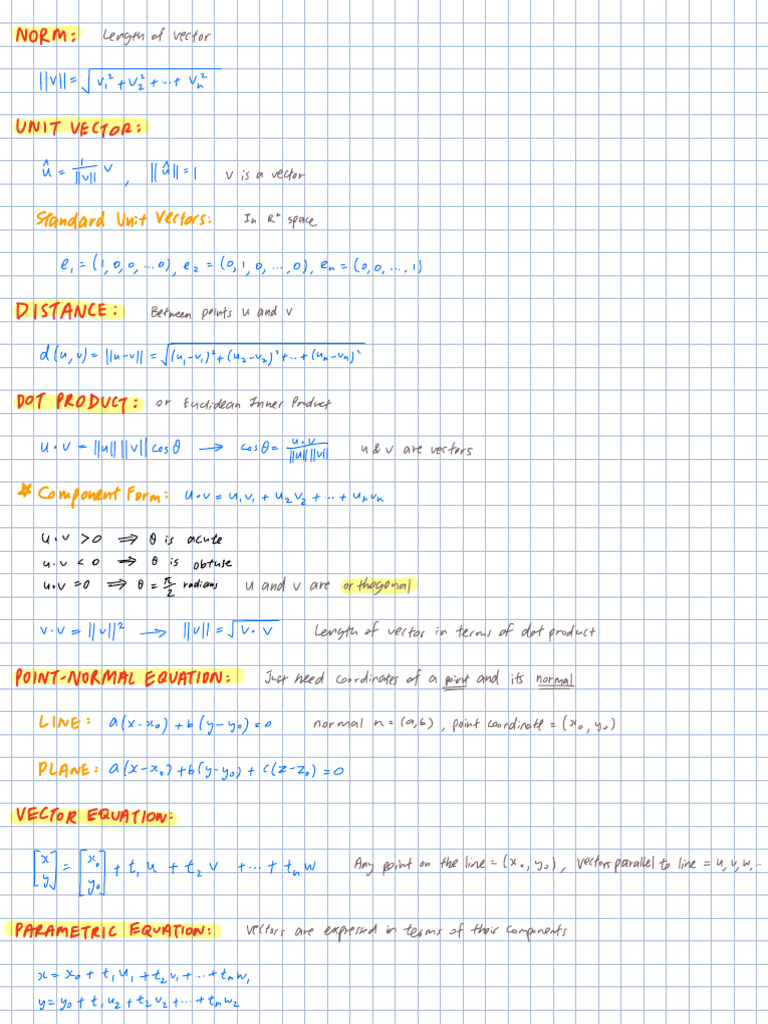 NORM: Length of vector
||v|| = √(v₁² + v₂² + ... + vₙ²)
UNIT VECTOR:
û = 1/||v|| v , ||û|| = 1 v is a vector
Standard Unit Vectors: In Rⁿ space
e₁ = (1,0,0,...0), e₂ = (0,1,0,...,0), eₙ = (0,0,...,1)
DISTANCE: Between points u and v
d(u,v) = ||u-v|| = √((u₁-v₁)² + (u₂-v₂)² + ... + (uₙ-vₙ)²)
DOT PRODUCT: or Euclidean Inner Product
u·v = ||u|| ||v|| cosθ → cosθ = u·v/||u|| ||v|| u & v are vectors
* Component Form: u·v = u₁v₁ + u₂v₂ + ... + uₙvₙ
u·v > 0 ⇒ θ is acute
u·v < 0 ⇒ θ is obtuse
u·v = 0 ⇒ θ = π/2 radians u and v are orthogonal
v·v = ||v||² → ||v|| = √(v·v) Length of vector in terms of dot product
POINT-NORMAL EQUATION: Just need coordinates of a point and its normal
LINE: a(x-x₀) + b(y-y₀) = 0 normal n = (a,b), point coordinate = (x₀, y₀)
PLANE: a(x-x₀) + b(y-y₀) + c(z-z₀) = 0
VECTOR EQUATION:
[x y] = [x₀ y₀] + t₁u + t₂v + ... + tₙw Any point on the line = (x₀, y₀), vectors parallel to line = u,v,w,...
PARAMETRIC EQUATION: vectors are expressed in terms of their components
x = x₀ + t₁u₁ + t₂v₁ + ... + tₙw₁
y = y₀ + t₁u₂ + t₂v₂ + ... + tₙw₂